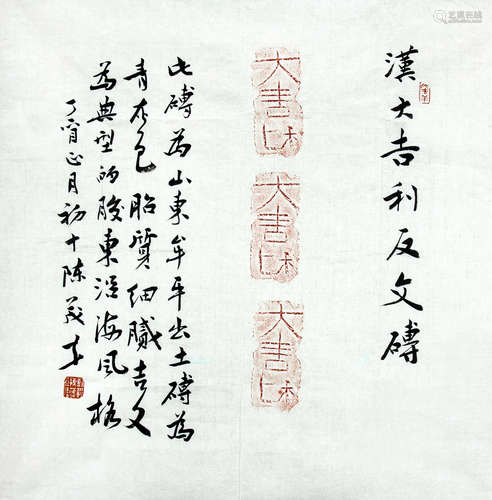 漢大吉利反文磚
大吉利
大吉利
大吉利
此磚為山東牟平出土磚為
青灰色胎質細膩吉文
為典型的膠東沿海風格
丁酉正月初十陳
艺狐在线